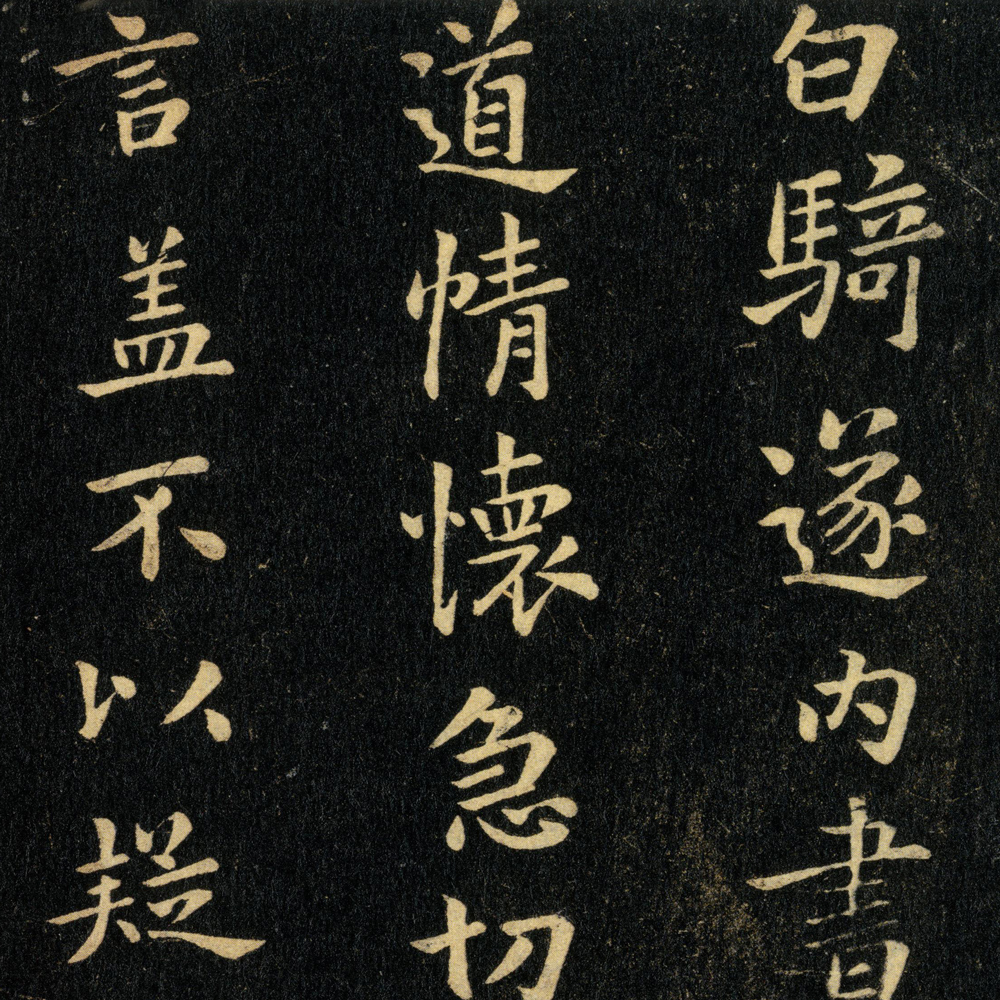 白騎遂内書
道情懷急切
言盖不以疑